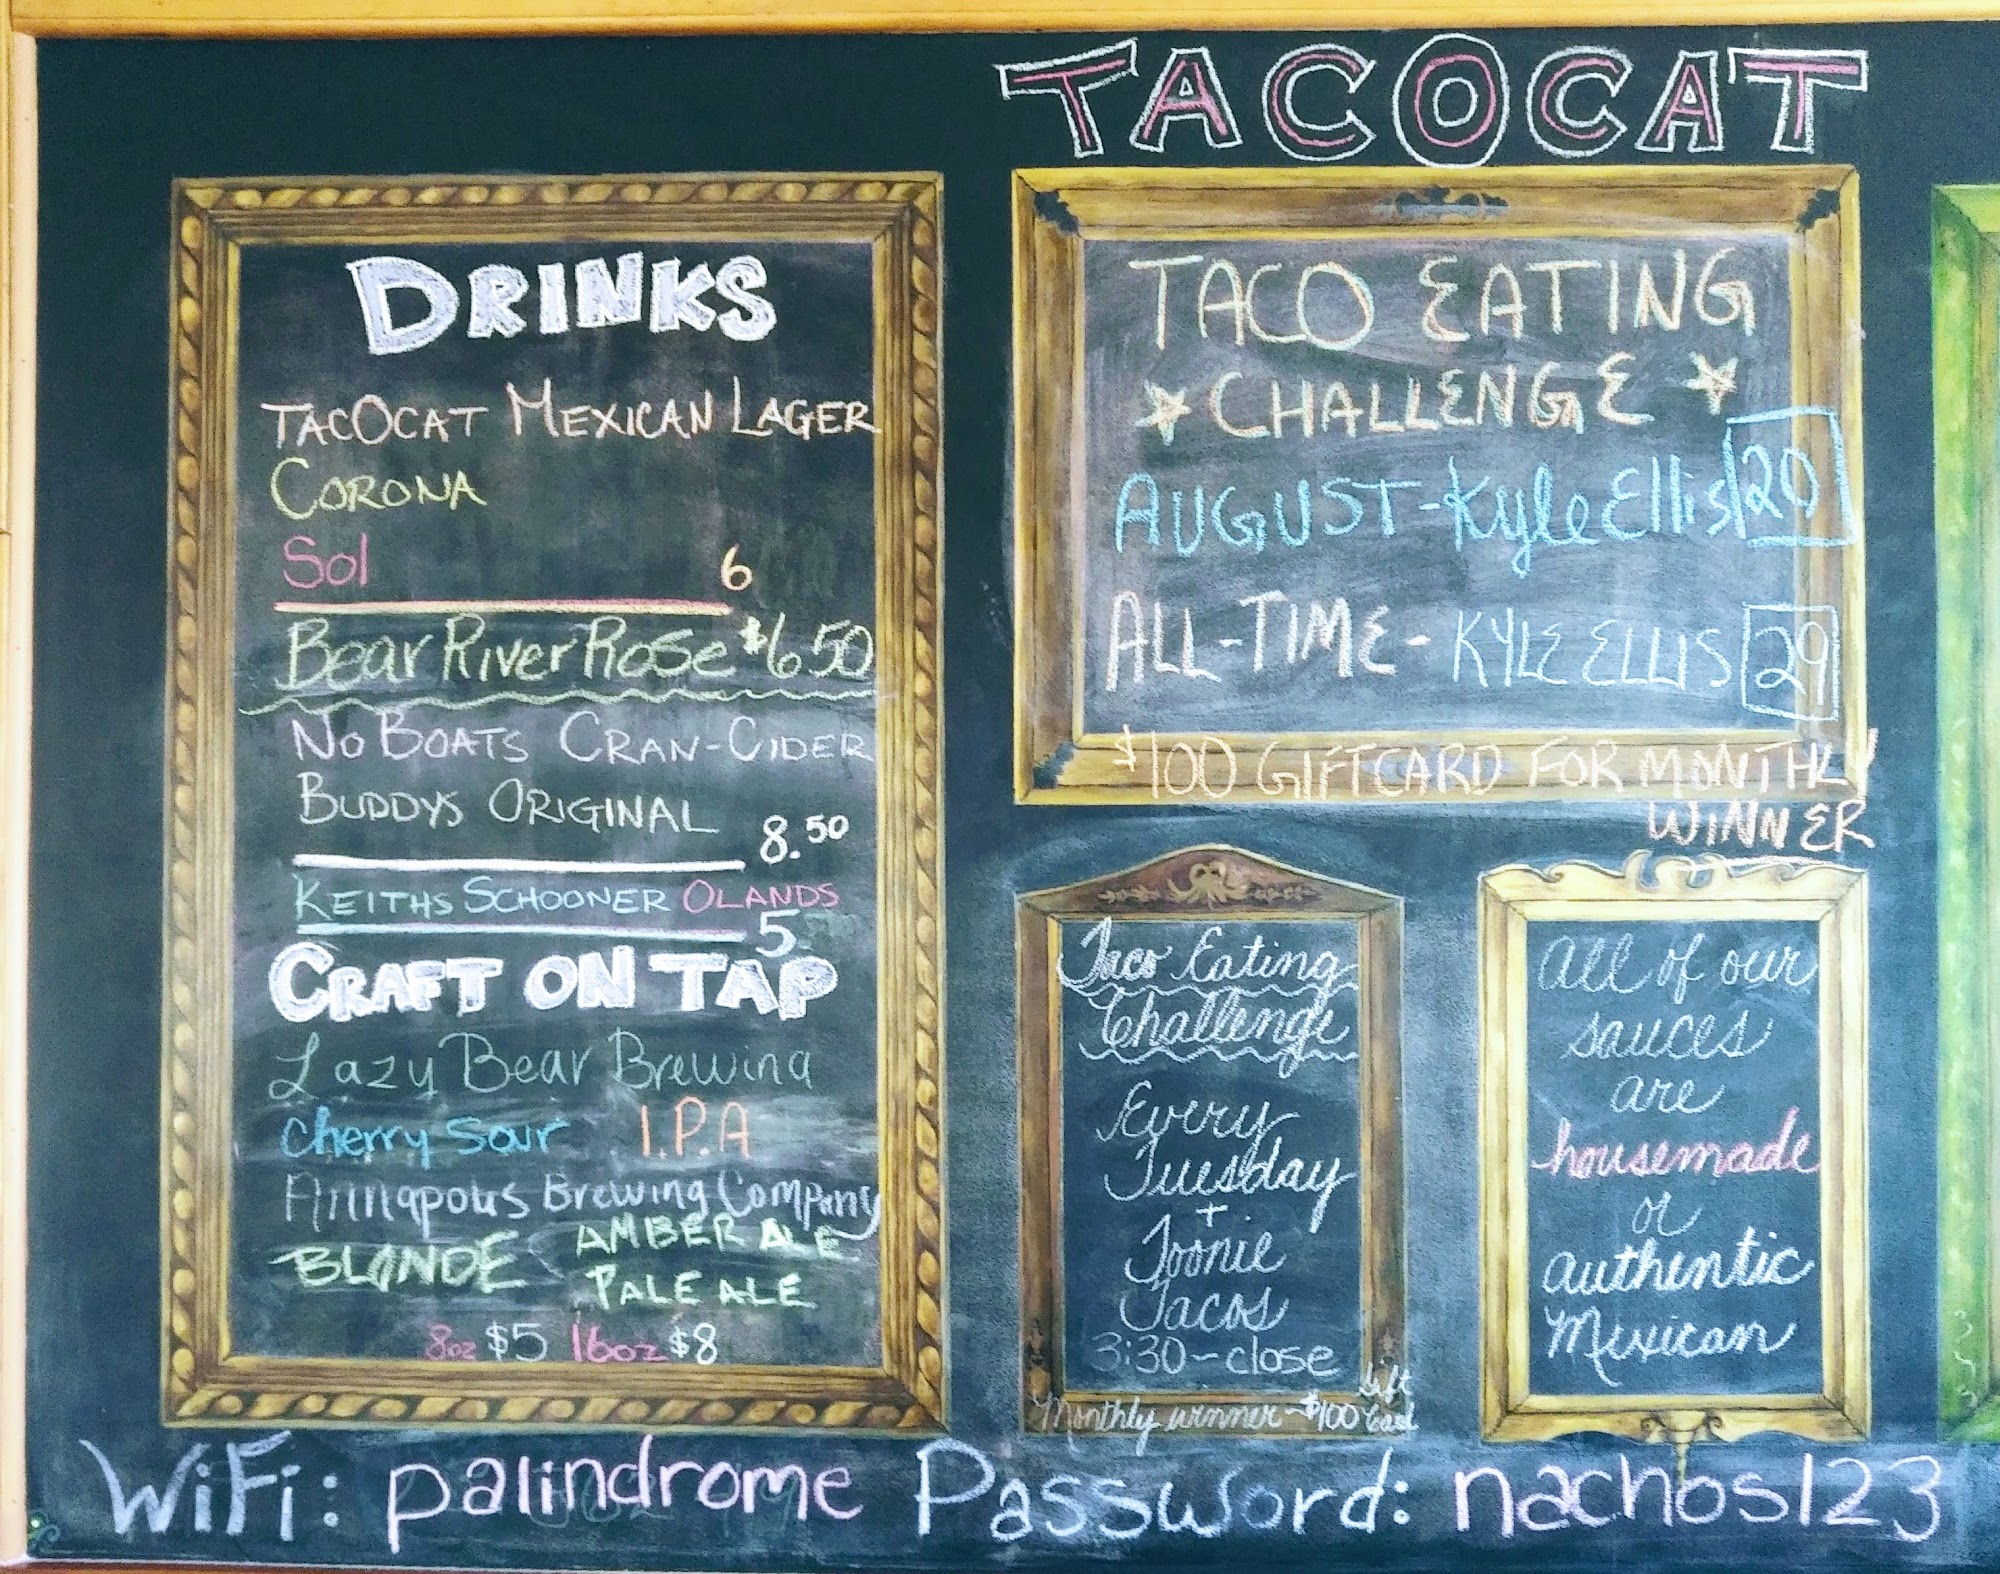 TACOCAT
DRINKS
TACOCAT MEXICAN LAGER
CORONA
Sol 6
Bear River Rose $6.50
NO BOATS CRAN-CIDER
BUDDYS ORIGINAL 8.50
KEITHS SCHOONER OLANDS
5
CRAFT ON TAP
Lazy Bear Brewing
Cherry Sour I.P.A
Annapolis Brewing Company
BLONDE AMBER ALE
PALE ALE
8oz $5 16oz $8
TACO EATING
CHALLENGE
AUGUST - Kyle Ellis 20
ALL-TIME - KYLE ELLIS 29
$100 GIFTCARD FOR MONTHLY
WINNER
Taco Eating
Challenge
Every
Tuesday
+
Toonie
Tacos
3:30-close
Monthly winner - $100 Gift
Card
All of our
sauces
are
housemade
or
authentic
Mexican
WiFi: palindrome Password: nachos123